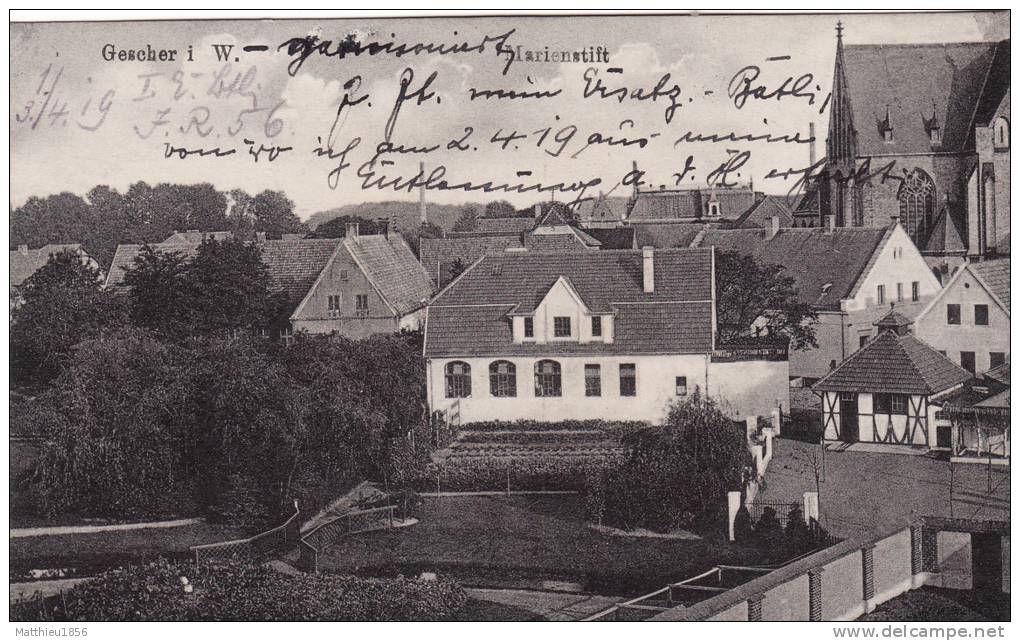 Gescher i W. – garnisoniert Marienstift
z. Zt. mein Ersatz.-Batl.,
von wo ich am 2.4.19 aus meine
Entlassung a. d. H. erfolgt
1/
3./4.19 I E. Btl.
J.R. 56
Matthieu1856
www.delcampe.net